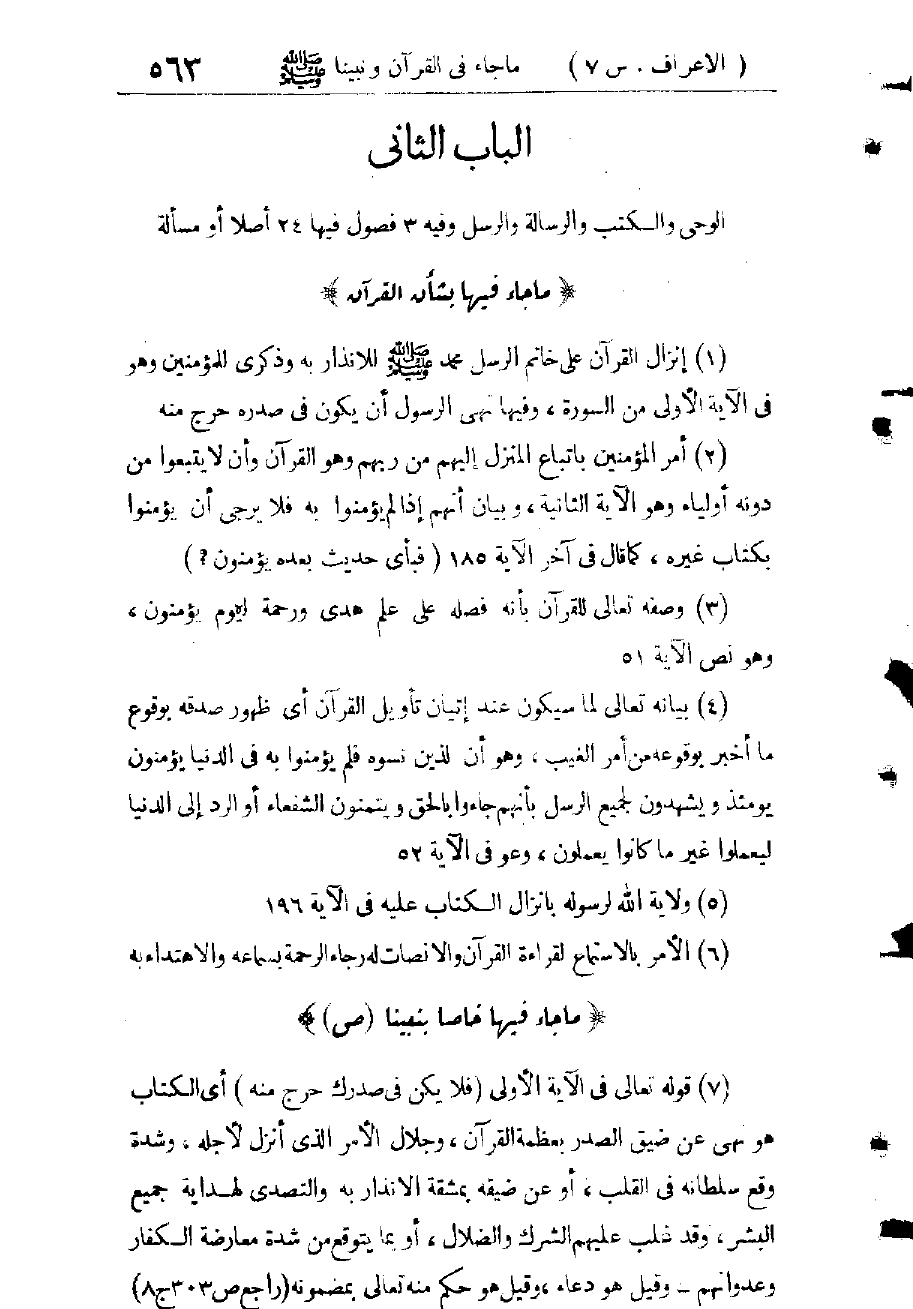 ( الاعراف . س ٧ ) ماجاء فى القرآن ونبينا ﷺ ٥٦٣
الباب الثانى
الوحى والكتب والرسالة والرسل وفيه ٣ فصول فيها ٢٤ أصلا أو مسألة
﴿ ماجاء فيها بشأن القرآن ﴾
(١) إنزال القرآن على خاتم الرسل محمد ﷺ للانذار به وذكرى للمؤمنين وهو
فى الآية الأولى من السورة ، وفيها نهى الرسول أن يكون فى صدره حرج منه
(٢) أمر المؤمنين باتباع المنزل إليهم من ربهم وهو القرآن وأن لا يتبعوا من
دونه أولياء وهو الآية الثانية ، وبيان أنهم إذا لم يؤمنوا به فلا يرجى أن يؤمنوا
بكتاب غيره ، كما قال فى آخر الآية ١٨٥ ( فبأى حديث بعده يؤمنون ? )
(٣) وصفه تعالى للقرآن بأنه فصله على علم هدى ورحمة لقوم يؤمنون ،
وهو نص الآية ٥١
(٤) بيانه تعالى لما سيكون عند إتيان تأويل القرآن أى ظهور صدقه بوقوع
ما أخبر بوقوعه من أمر الغيب ، وهو أن لذين نسوه فلم يؤمنوا به فى الدنيا يؤمنون
يومئذ ويشهدون لجميع الرسل بأنهم جاءوا بالحق ويتمنون الشفعاء أو الرد إلى الدنيا
ليعملوا غير ما كانوا يعملون ، وعو فى الآية ٥٢
(٥) ولاية الله لرسوله بانزال الكتاب عليه فى الآية ١٩٦
(٦) الأمر بالاستماع لقراءة القرآن والانصات له رجاء الرحمة بسماعه والاهتداء به
﴿ ماجاء فيها خاصا بنبينا (ص) ﴾
(٧) قوله تعالى فى الآية الأولى (فلا يكن فى صدرك حرج منه ) أى الكتاب
هو نهى عن ضيق الصدر بعظمة القرآن ، وجلال الأمر الذى أنزل لأجله ، وشدة
وقع سلطانه فى القلب ، أو عن ضيقه بمشقة الاندار به والتصدى لهداية جميع
البشر ، وقد غلب عليهم الشرك والضلال ، أو بما يتوقع من شدة معارضة الكفار
وعدوانهم ــ وقيل هو دعاء ، وقيل هو حكم منه تعالى بمضمونه (راجع ص ٣٠٣ ج ٨)